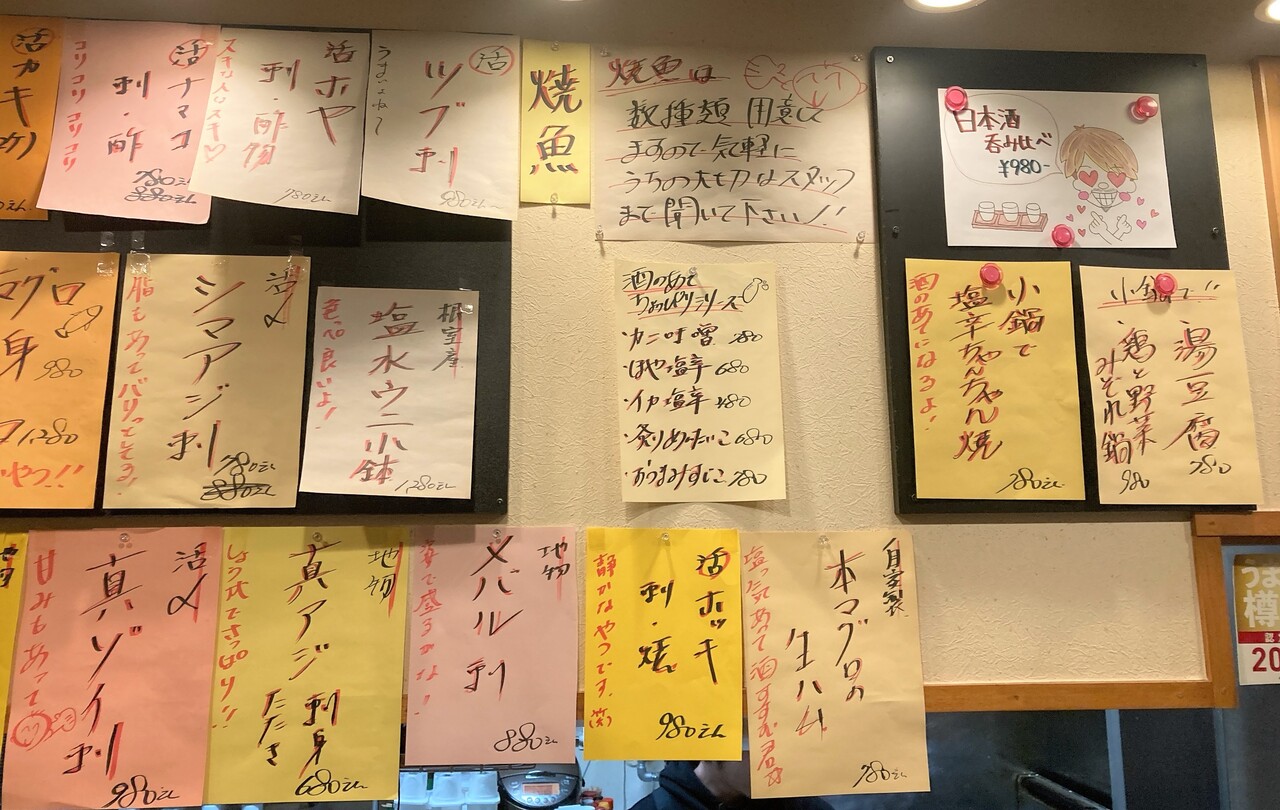 活カキ
活ナマコ
刺・酢
コリコリコリコリ
780えん
880えん
活ホヤ
刺・酢物
スキな人はスキ♡
780えん
活
ツブ刺
うまいよね〜
980えん
焼魚
焼魚は
数種類用意して
ますので気軽に
うちの大切なスタッフ
まで聞いて下さい!!
日本酒
呑み比べ
¥980-
マグロ
身
980
1,280
やつ!!
活〆
シマアジ刺
脂もあってバリってしてる!
780えん
880えん
根室産
塩水ウニ小鉢
色も良いよ!
1,280えん
酒のあて
ちょぴりシリーズ
・カニ味噌 780
・ほや塩辛 680
・イカ塩辛 480
・炙りめんたいこ 680
・あつまみすじこ 780
小鍋で
塩辛ちゃんちゃん焼
酒のあてになるよ!
780えん
小鍋で!!
湯豆腐
780
鶏と野菜
みぞれ鍋
980
地物
活〆
真ゾイ刺
甘みもあって
980えん
地物
真アジ
刺身
たたき
しょう油でさっぱり!!
680えん
地物
メバル刺
姿で盛るかな!!
880えん
活ホッキ
刺・焼
静かなやつです。(笑)
980えん
自家製
本マグロの
生ハム
塩っ気あって酒すすむ君
780えん
うま
樽
20